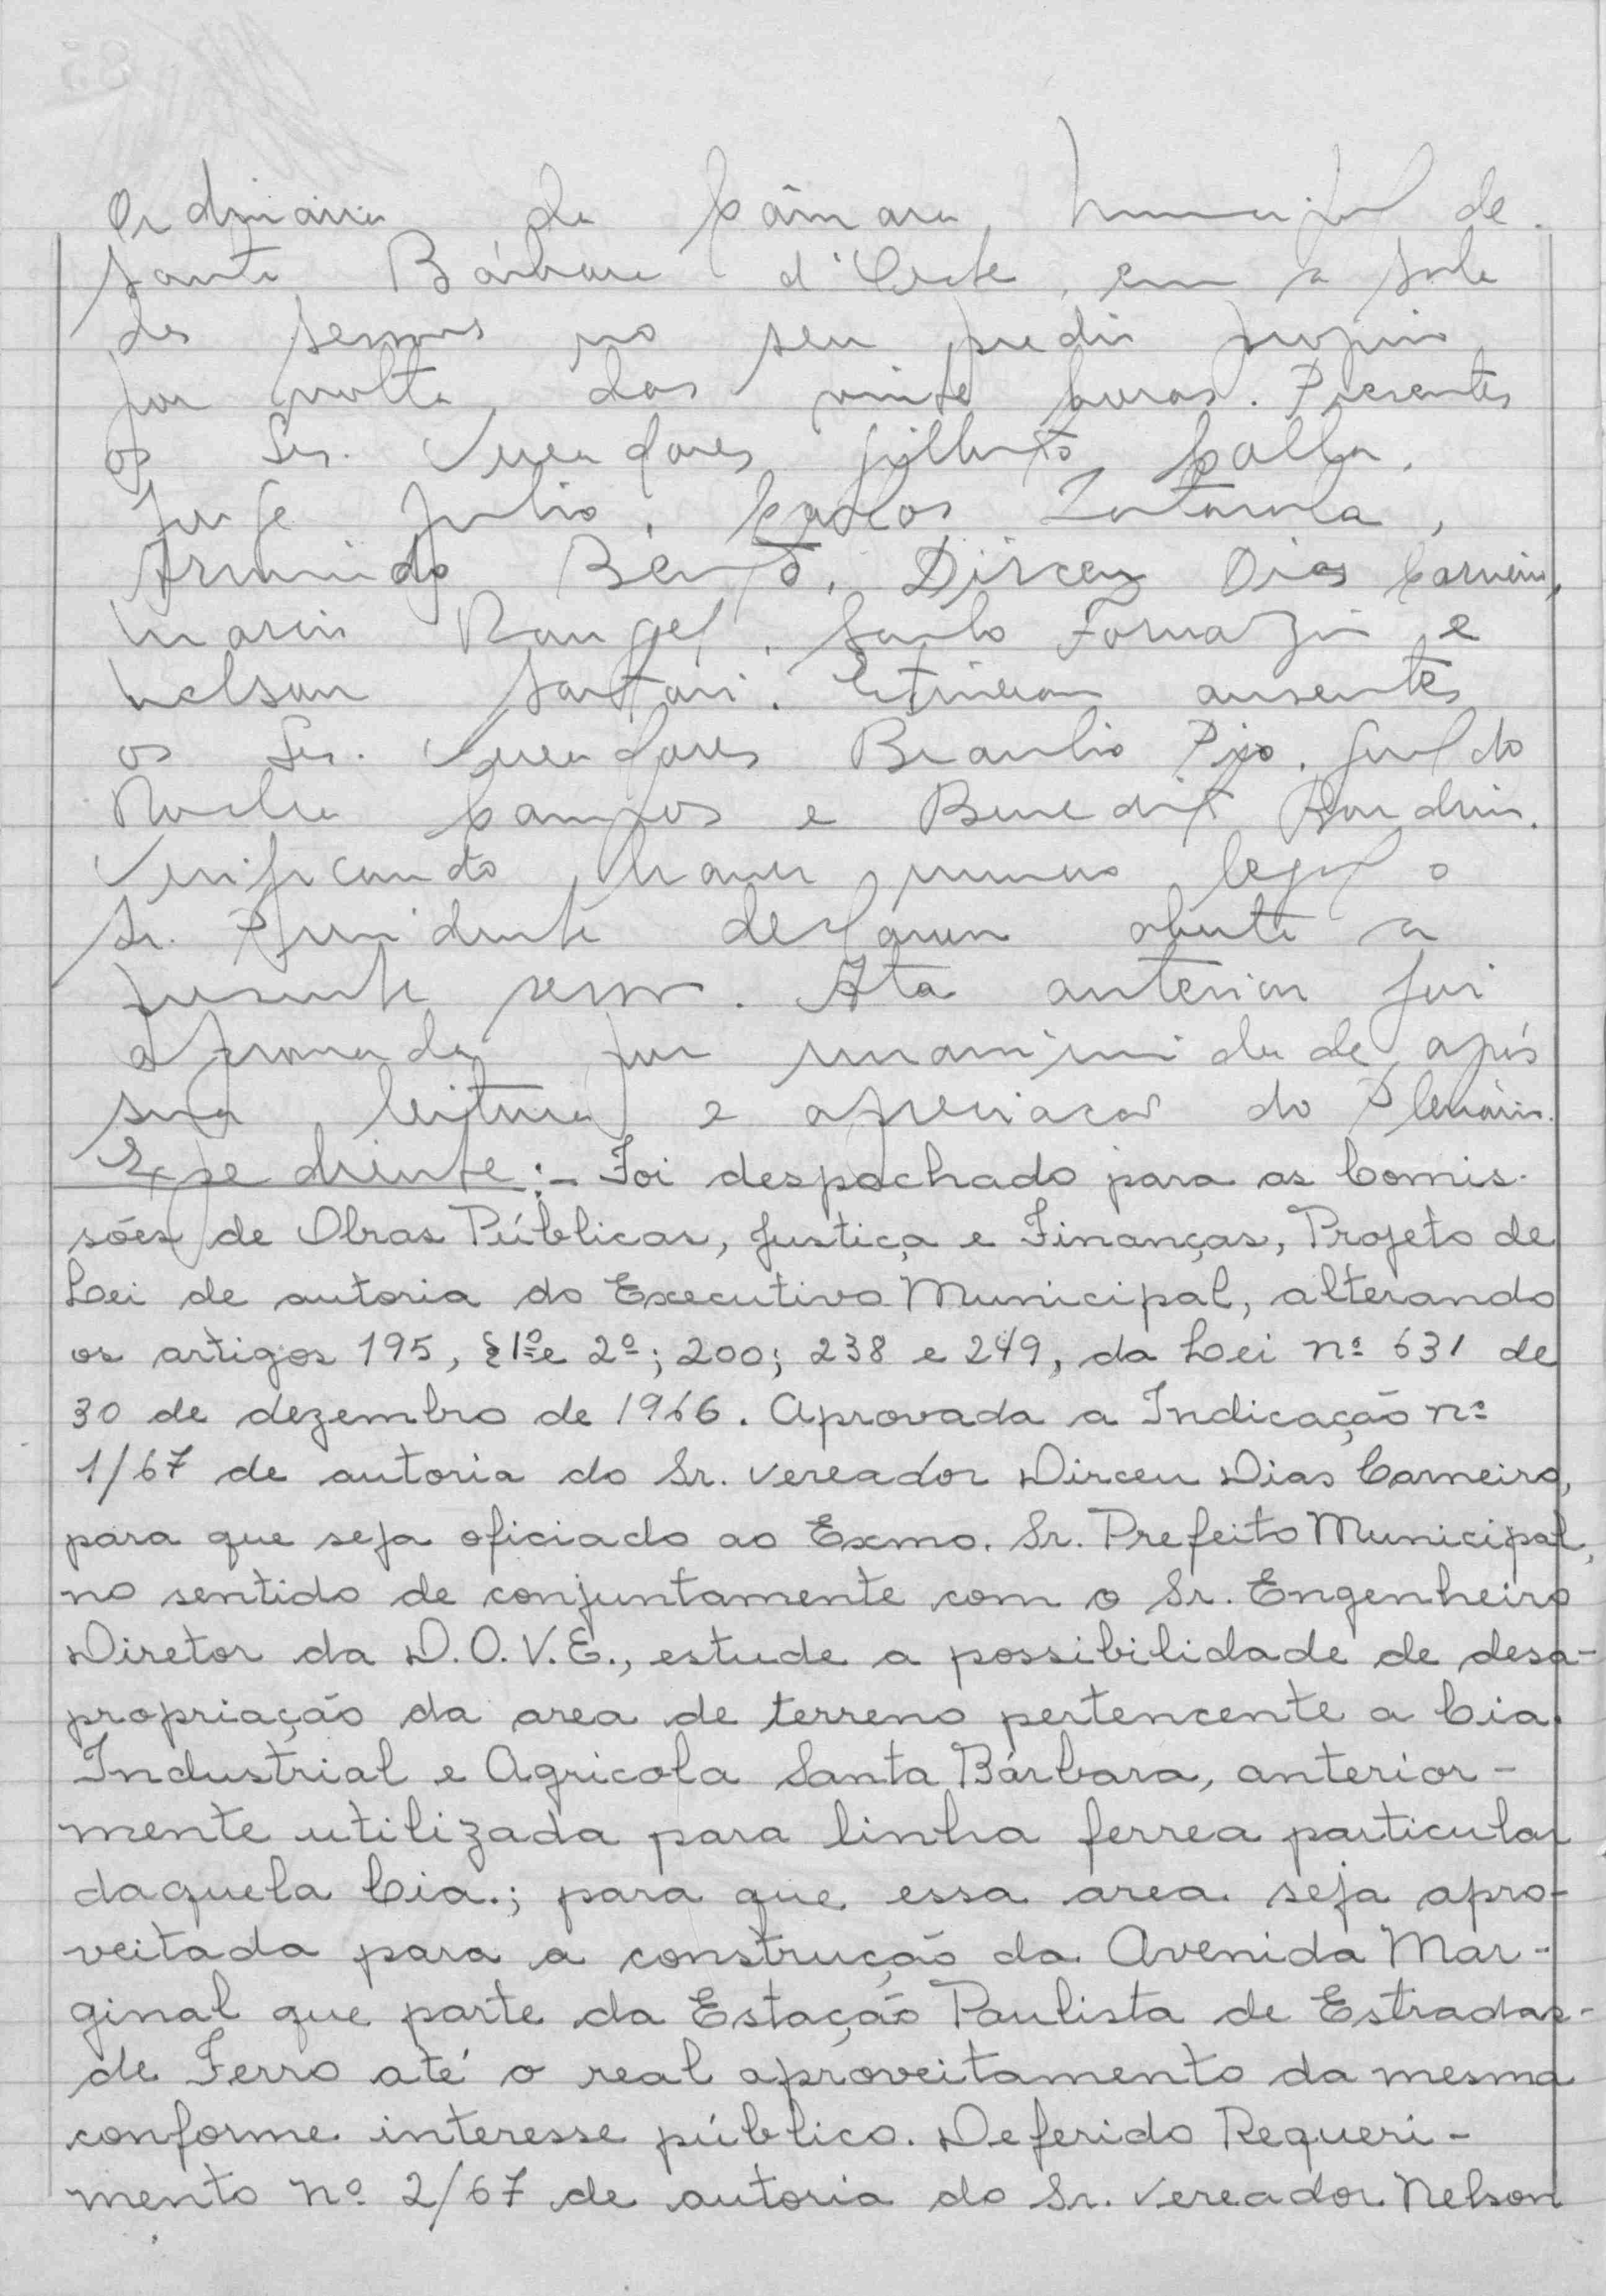 Ordinária da Câmara Municipal de
Santa Bárbara d'Oeste, em a sala
das sessões no seu predio proprio
por volta das vinte horas. Presentes
os Srs. Vereadores Gilberto Calla,
Jorge Julio, Carlos
Armindo Bento, Dirceu Dias Carneiro,
Mario Rangel, Saulo Fornazin e
Nelson Sartori. Estiveram ausentes
os Srs. Vereadores Braulio Pio,
Rocha Campos e Benedito
Verificando haver numero legal o
Sr. Presidente declarou aberta a
presente sessão. Ata anterior foi
aprovada por unanimidade após
sua leitura e apreciacão do Plenário.
Expediente:- Foi despachado para as Comis-
sões de Obras Públicas, Justiça e Finanças, Projeto de
Lei de autoria do Executivo Municipal, alterando
os artigos 195, § 1º e 2º; 200; 238 e 249, da Lei nº 631 de
30 de dezembro de 1966. Aprovada a Indicação nº
1/67 de autoria do Sr. Vereador Dirceu Dias Carneiro,
para que seja oficiado ao Exmo. Sr. Prefeito Municipal,
no sentido de conjuntamente com o Sr. Engenheiro
Diretor da D.O.V.E., estude a possibilidade de desa-
propriação da area de terreno pertencente a Cia.
Industrial e Agricola Santa Bárbara, anterior-
mente utilizada para linha ferrea particular
daquela Cia.; para que essa area seja apro-
veitada para a construção da Avenida Mar-
ginal que parte da Estação Paulista de Estradas-
de Ferro até o real aproveitamento da mesma
conforme interesse público. Deferido Requeri-
mento nº 2/67 de autoria do Sr. Vereador Nelson